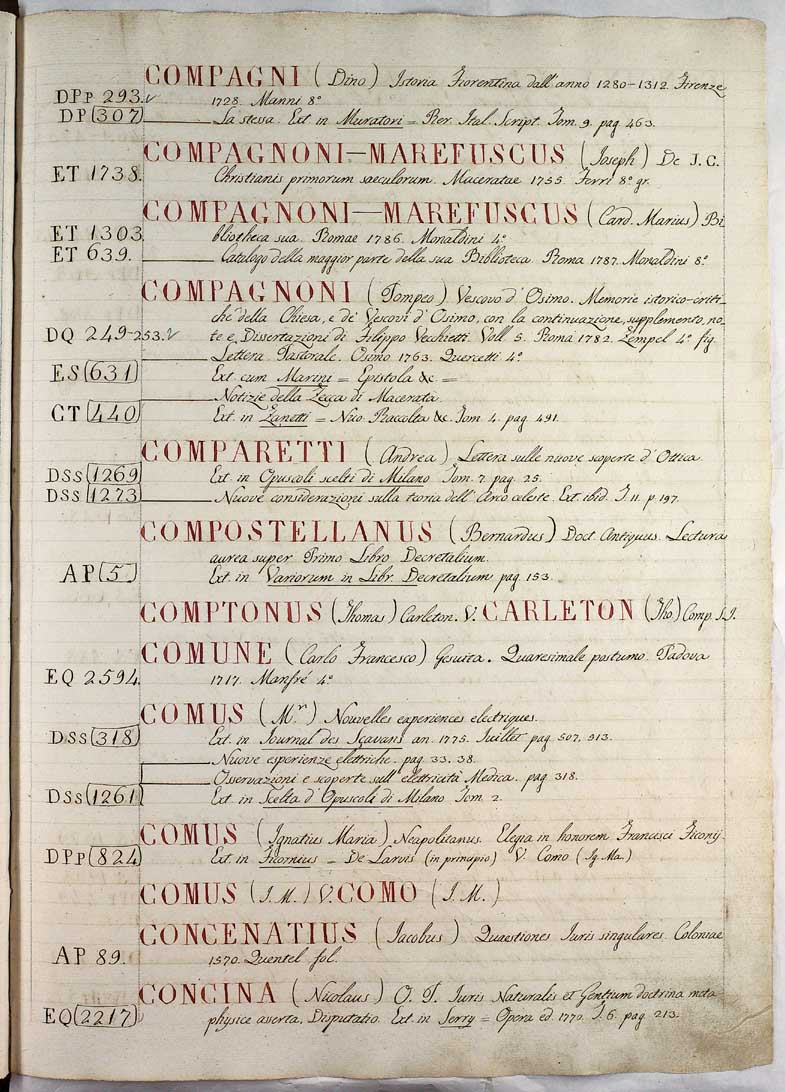 COMPAGNI (Dino) Istoria Fiorentina dall'anno 1280-1312. Firenze
DPp 293. 1728. Manni 8.º
DP (307) La stessa. Ext. in Muratori = Rer. Ital. Script. Tom. 9. pag. 463.
COMPAGNONI-MAREFUSCUS (Joseph) De J. C.
ET 1738. Christianis primorum saeculorum. Maceratae 1755. Ferri 8.º gr.
COMPAGNONI-MAREFUSCUS (Card. Marius) Bi
ET 1303. bliotheca sua. Romae 1786. Monaldini 4.º
ET 639. Catalogo della maggior parte della sua Biblioteca. Roma 1787. Monaldini 8.º
COMPAGNONI (Pompeo) Vescovo d'Osimo. Memorie istorico-criti-
che della Chiesa, e de' Vescovi d'Osimo, con la continuazione, supplemento, no-
DQ 249-253. te e Dissertazioni di Filippo Vecchietti. Voll. 5. Roma 1782. Zempel 4.º fig.
Lettera Pastorale. Osimo 1763. Quercetti 4.º
ES (631) Ext. cum Marini = Epistola &c. =
Notizie della Zecca di Macerata.
CT (440) Ext. in Zanetti = Nuo. Raccolta &c. Tom. 4. pag. 491.
COMPARETTI (Andrea) Lettera sulle nuove scoperte d'Ottica.
DSS (1269) Ext. in Opuscoli scelti di Milano Tom. 7. pag. 25.
DSS (1273) Nuove considerazioni sulla teoria dell'Arco celeste. Ext. ibid. T. 11. p. 197.
COMPOSTELLANUS (Bernardus) Doct. Antiquus. Lectura
aurea super Primo Libro Decretalium.
AP (5) Ext. in Variorum in Libr. Decretalium pag. 153.
COMPTONUS (Thomas) Carleton. V. CARLETON (Tho.) Comp. S. J.
COMUNE (Carlo Francesco) Gesuita. Quaresimale postumo. Padova
EQ 2594. 1717. Manfré 4.º
COMUS (M.r) Nouvelles experiences electriques.
DSS (318) Ext. in Journal des Sçavans an. 1775. Juillet pag. 507. 513.
Nuove esperienze elettriche. pag. 33. 38.
Osservazioni e scoperte sull'elettricità Medica. pag. 318.
DSS (1261) Ext. in Scelta d'Opuscoli di Milano Tom. 2.
COMUS (Ignatius Maria) Neapolitanus. Elegia in honorem Francisci Ficonij.
DPp (824) Ext. in Ficornius = De Larvis (in principio) V. Como (Ig. Ma.)
COMUS (I. M.) V. COMO (I. M.)
CONCENATIUS (Jacobus) Quaestiones Juris singulares. Coloniae
AP 89. 1570. Quentel fol.
CONCINA (Nicolaus) O. P. Juris Naturalis et Gentium doctrina meta
EQ (2217) physice asserta. Disputatio. Ext. in Serry = Opera ed. 1770. T. 6. pag. 213.